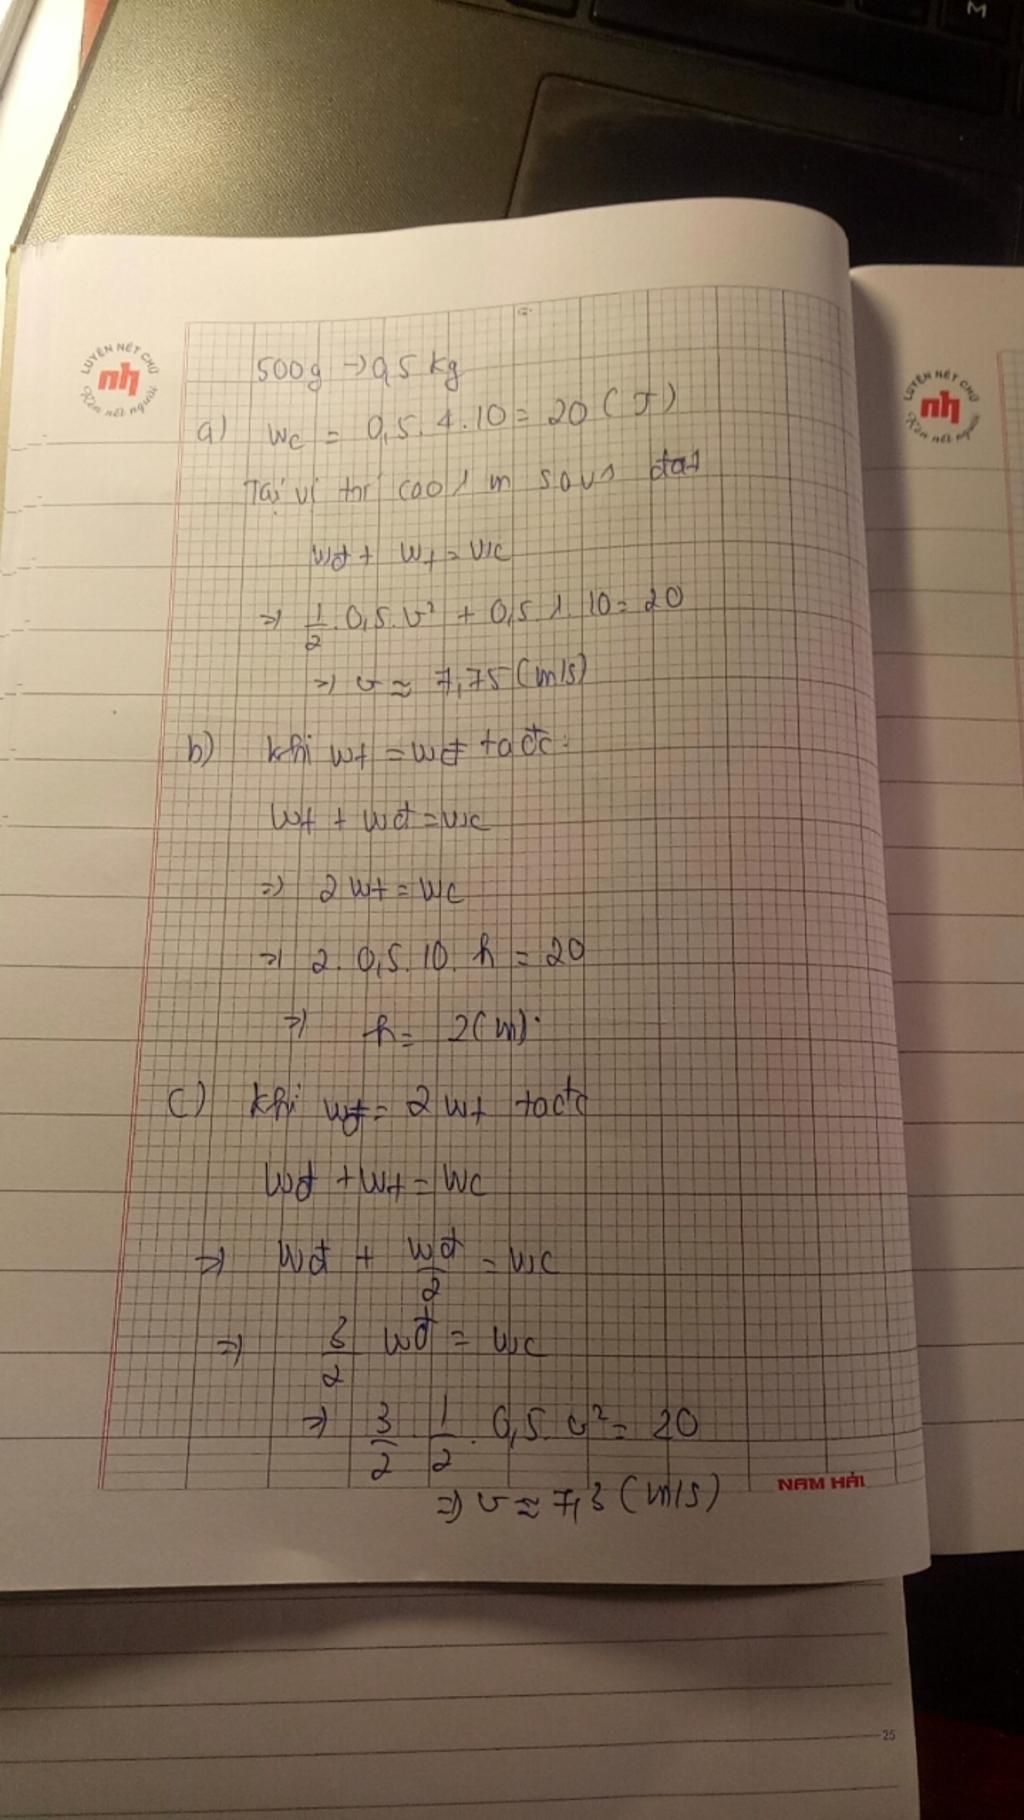 M
LUYỆN NÉT CHỮ
nh
Rèn nết người
LUYỆN NÉT CHỮ
nh
Rèn nết người
500g → 0,5 kg
a) Wc = 0,5. 4. 10 = 20 (J)
Tại vị trí cao 1 m so với đất
Wđ + Wt = Wc
⇒ 1/2 . 0,5. v² + 0,5. 1. 10 = 20
⇒ v ≈ 7,75 (m/s)
b) Khi Wt = Wđ ta có:
Wt + Wđ = Wc
⇒ 2 Wt = Wc
⇒ 2. 0,5. 10. h = 20
⇒ h = 2 (m).
c) Khi Wđ = 2 Wt ta có
Wđ + Wt = Wc
⇒ Wđ + Wđ/2 = Wc
⇒ 3/2 Wđ = Wc
⇒ 3/2 1/2 . 0,5. v² = 20
⇒ v ≈ 7,3 (m/s)
NAM HẢI
25